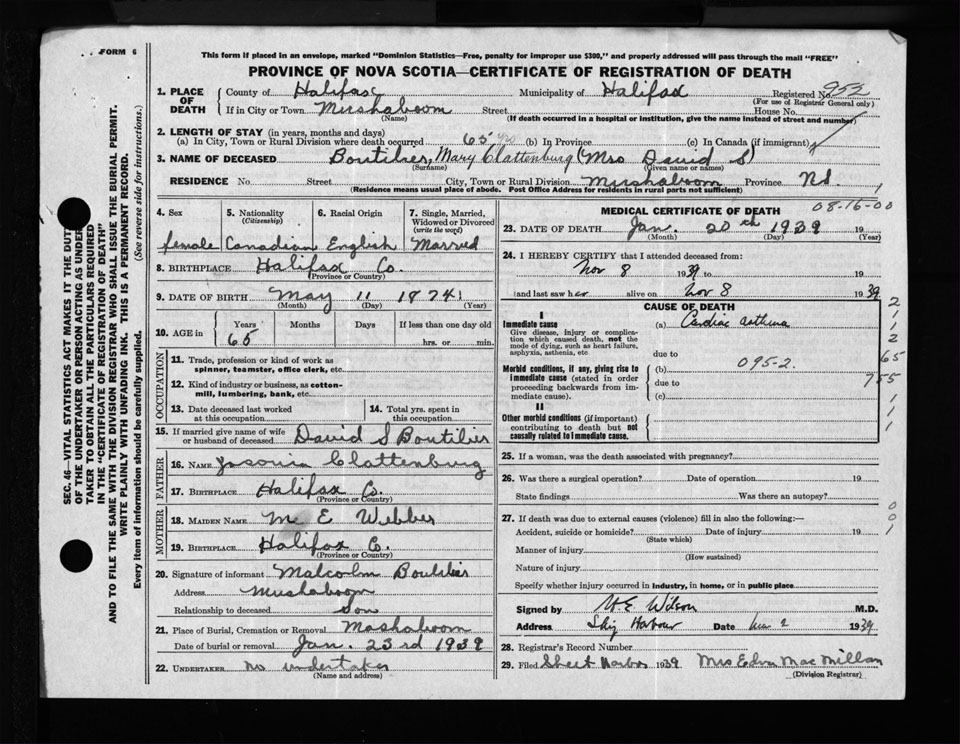 FORM 6
This form if placed in an envelope, marked "Dominion Statistics—Free, penalty for improper use $300," and properly addressed will pass through the mail "FREE"
PROVINCE OF NOVA SCOTIA—CERTIFICATE OF REGISTRATION OF DEATH
1. PLACE OF DEATH
County of Halifax Municipality of Halifax Registered No. 952
(For use of Registrar General only)
If in City or Town Mushaboom Street House No.
(Name) (If death occurred in a hospital or institution, give the name instead of street and number)
2. LENGTH OF STAY (in years, months and days)
(a) In City, Town or Rural Division where death occurred 65 yrs (b) In Province (c) In Canada (if immigrant)
3. NAME OF DECEASED Boutilier, Mary Clattenburg (Mrs David S)
(Surname) (Given name or names)
RESIDENCE No. Street City, Town or Rural Division Mushaboom Province NS.
(Residence means usual place of abode. Post Office Address for residents in rural parts not sufficient)
4. Sex 5. Nationality (Citizenship) 6. Racial Origin 7. Single, Married, Widowed or Divorced (write the word)
female Canadian English Married
8. BIRTHPLACE Halifax Co.
(Province or Country)
9. DATE OF BIRTH May 11 1874
(Month) (Day) (Year)
10. AGE in Years Months Days If less than one day old
65 hrs. or min.
OCCUPATION
11. Trade, profession or kind of work as spinner, teamster, office clerk, etc.
12. Kind of industry or business, as cotton-mill, lumbering, bank, etc.
13. Date deceased last worked at this occupation
14. Total yrs. spent in this occupation
15. If married give name of wife or husband of deceased David S Boutilier
FATHER
16. NAME Clattenburg
17. BIRTHPLACE Halifax Co.
(Province or Country)
MOTHER
18. MAIDEN NAME M E Webber
19. BIRTHPLACE Halifax Co.
(Province or Country)
20. Signature of informant Malcolm Boutilier
Address Mushaboom
Relationship to deceased Son
21. Place of Burial, Cremation or Removal Moshaboom
Date of burial or removal Jan. 23rd 1939
22. UNDERTAKER no undertaker
(Name and address)
MEDICAL CERTIFICATE OF DEATH 08-16-00
23. DATE OF DEATH Jan. 20th 1939 19
(Month) (Day) (Year)
24. I HEREBY CERTIFY that I attended deceased from:
Nov 8 1939 to 19
and last saw her alive on Nov 8 1939
CAUSE OF DEATH
I
Immediate cause (a) Cardiac asthma
Give disease, injury or complication which caused death, not the mode of dying, such as heart failure, asphyxia, asthenia, etc
due to
Morbid conditions, if any, giving rise to immediate cause (stated in order proceeding backwards from immediate cause).
(b) 095-2.
due to
(c)
II
Other morbid conditions (if important) contributing to death but not causally related to immediate cause.
2
1
1
2
65
755
1
1
1
25. If a woman, was the death associated with pregnancy?
26. Was there a surgical operation? Date of operation 19
State findings Was there an autopsy?
27. If death was due to external causes (violence) fill in also the following:—
Accident, suicide or homicide? Date of injury 19
(State which)
Manner of injury
(How sustained)
Nature of injury
Specify whether injury occurred in industry, in home, or in public place
0
0
1
Signed by W.E. Wilson M.D.
Address Ship Harbour Date 2 1939
28. Registrar's Record Number
29. Filed Sheet Harbor 1939 Mrs Edna MacMillan
(Division Registrar)
SEC. 46—VITAL STATISTICS ACT MAKES IT THE DUTY
OF THE UNDERTAKER OR PERSON ACTING AS UNDER-
TAKER TO OBTAIN ALL THE PARTICULARS REQUIRED
IN THE "CERTIFICATE OF REGISTRATION OF DEATH"
AND TO FILE THE SAME WITH THE DIVISION REGISTRAR WHO SHALL ISSUE THE BURIAL PERMIT.
WRITE PLAINLY WITH UNFADING INK. THIS IS A PERMANENT RECORD.
Every item of information should be carefully supplied. (See reverse side for instructions.)